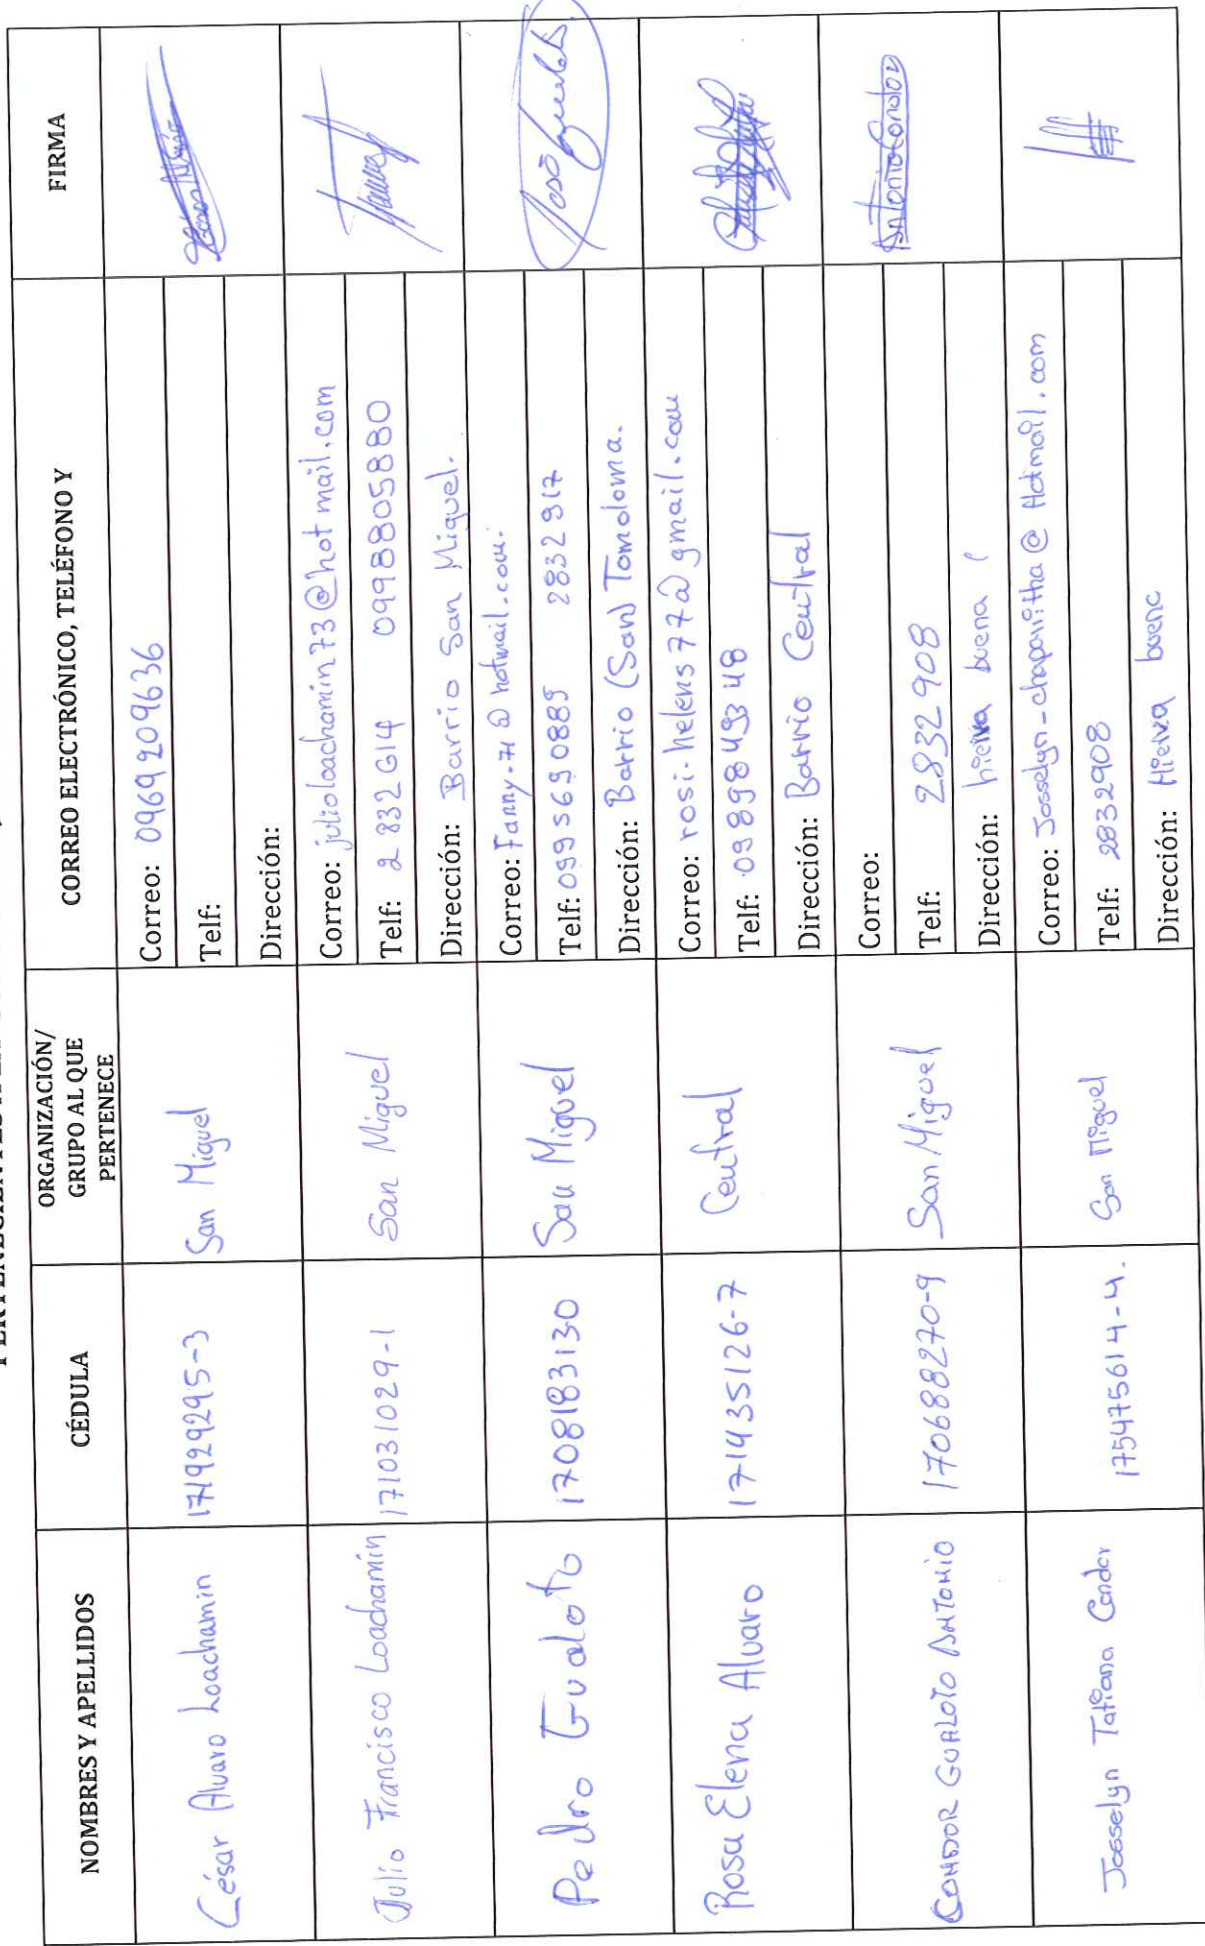 NOMBRES Y APELLIDOS
CÉDULA
ORGANIZACIÓN/
GRUPO AL QUE
PERTENECE
CORREO ELECTRÓNICO, TELÉFONO Y
FIRMA
César Alvaro Loachamin
171929295-3
San Miguel
Correo: 0969209636
Telf:
Dirección:
Julio Francisco Loachamín
171031029-1
San Miguel
Correo: julioloachamin73@hotmail.com
Telf: 2 832 614 0998805880
Dirección: Barrio San Miguel.
Pedro Gualoto
1708183130
San Miguel
Correo: Fanny-71@hotmail.com.
Telf: 0995690885 2832917
Dirección: Barrio (San) Tomoloma.
Rosa Elena Alvaro
171435126-7
Central
Correo: rosi-helens77@gmail.com
Telf: 0989849348
Dirección: Barrio Central
CONDOR GUALOTO ANTONIO
170688270-9
San Miguel
Correo:
Telf: 2832908
Dirección: hierva buena (
Antonio Condor
Josselyn Tatiana Condor
175475614-4.
San Miguel
Correo: Josselyn-chaparritha@Hotmail.com
Telf: 2832908
Dirección: Hierva buena